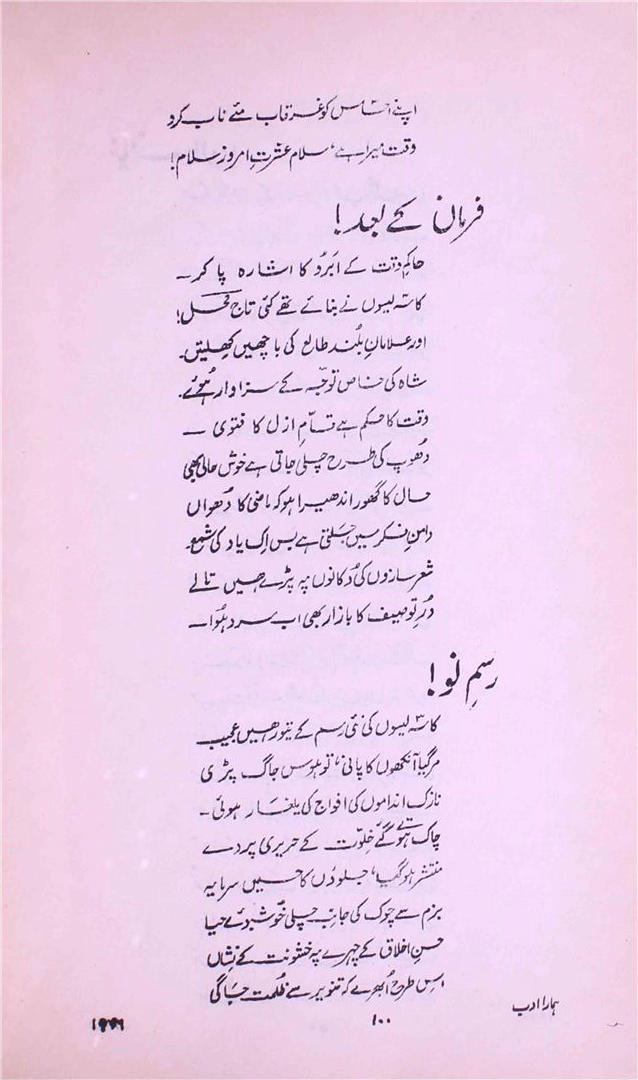 اپنے احساس کو غرقاب مئے ناب کرد
وقت میرا ہے، سلام عشرتِ امروز سلام!
فرمان کے بعد!
حاکمِ وقت کے ابرو کا اشارہ پا کر ــ
کاسہ لیسوں نے بنائے تھے کئی تاج محل!
اور غلامانِ بلُند طالع کی باچھیں کھِلیں۔
شاہ کی خاص توجّہ کے سزاوار ہُوئے۔
وقت کا حکم ہے قسّامِ ازل کا فتویٰ ــ
دھُوپ کی طرح چلی جاتی ہے خوش حالی بھی
حال کا گھور اندھیرا ہو کہ ماضی کا دُھواں
دامنِ فکر میں جلتی ہے بس اِک یاد کی شمع۔
شعر سازوں کی دُکانوں پہ پڑے ہیں تالے
دُرِ توصیف کا بازار بھی اب سرد ہُوا ــ
رسمِ نو!
کاسہ لیسوں کی نئی رسم کے تیور ہیں عجیب
مر گیا آنکھوں کا پانی، تو ہوس جاگ پڑی
نازک انداموں کی افواج کی یلغار ہوئی ۔
چاک ہوتے گئے خلوت کے حریری پردے
منتشر ہو گیا، جلوؤں کا حسیں سرمایہ
بزم سے چوک کی جانب چلی خوشبوئے حیا
حسنِ اخلاق کے چہرے پہ خشونت کے نِشاں
اِس طرح اُبھرے کہ تنویر سے ظُلمت جاگی
ہمارا ادب
۱۰۰